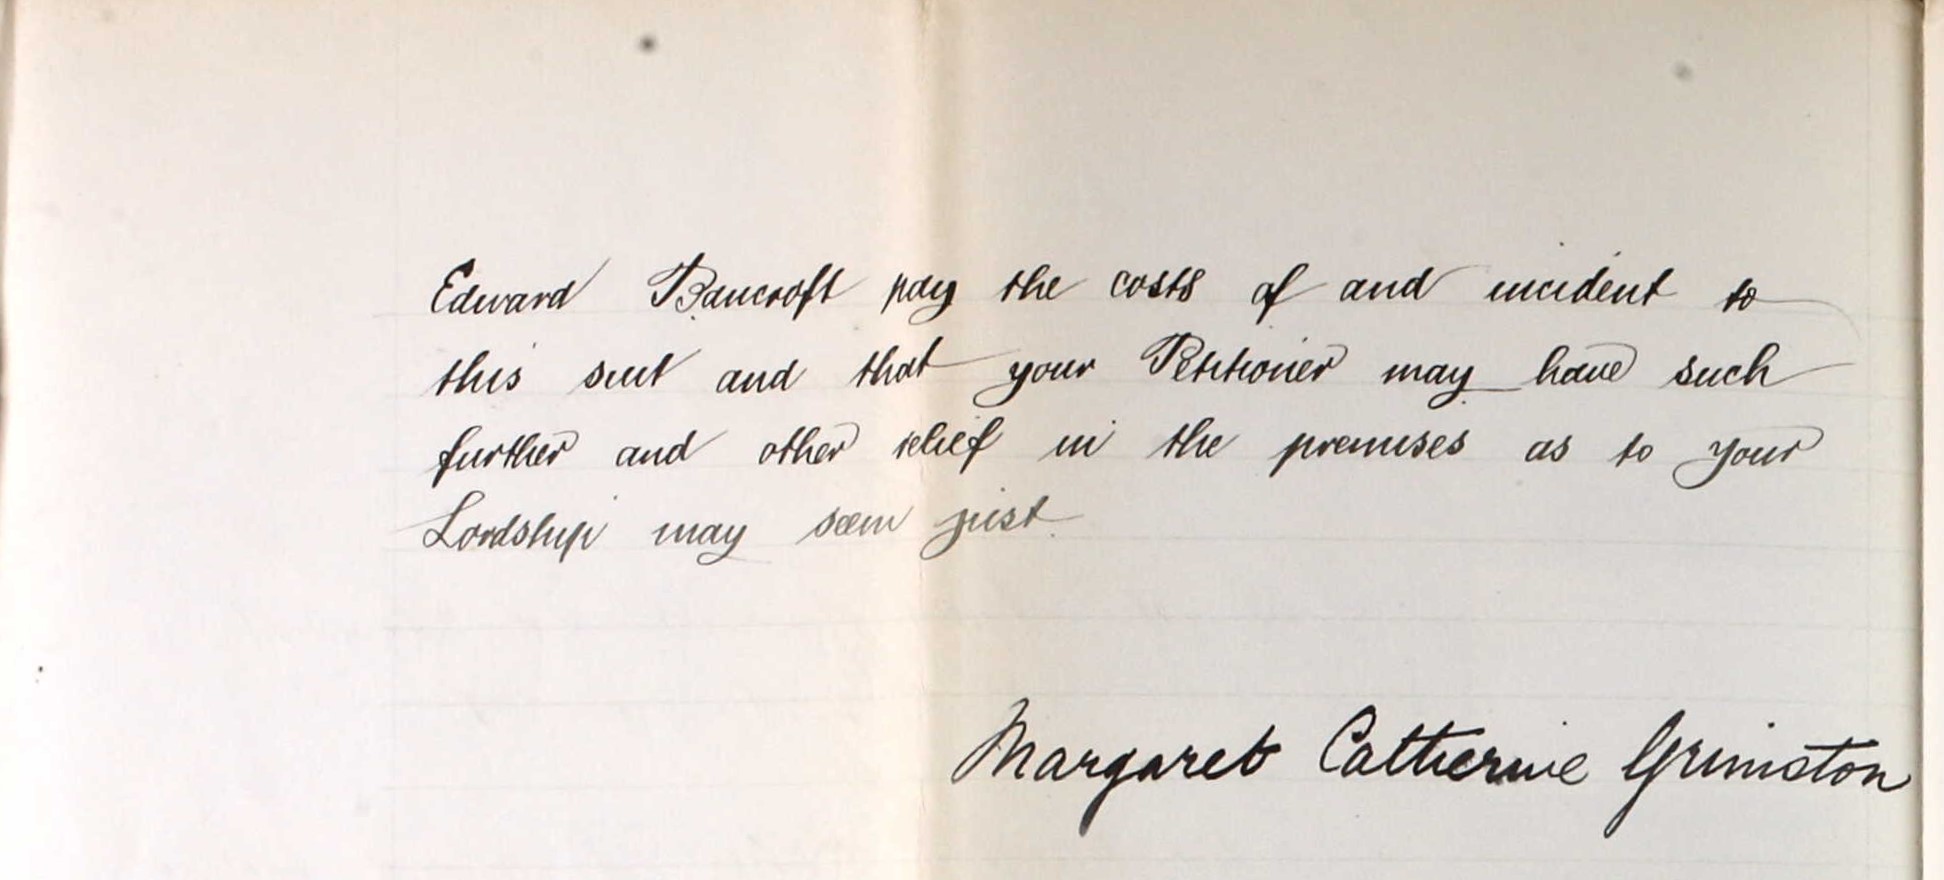 Edward Bancroft pay the costs of and incident to
this suit and that your Petitioner may have such
further and other relief in the premises as to your
Lordship may seem just.
Margaret Catherine Grimston